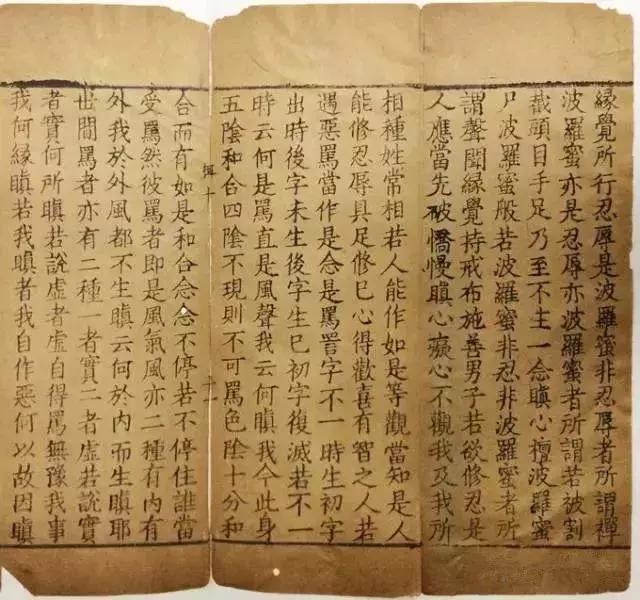 緣覺所行忍辱是波羅蜜非忍辱者所謂禪
波羅蜜亦是忍辱亦波羅蜜者所謂若被割
截頭目手足乃至不生一念瞋心檀波羅蜜
尸波羅蜜般若波羅蜜非忍非波羅蜜者所
謂聲聞緣覺持戒布施善男子若欲修忍是
人應當先破憍慢瞋心癡心不觀我及我所
相種姓常相若人能作如是等觀當知是人
能修忍辱具足修已心得歡喜有智之人若
遇惡罵當作是念是罵詈字不一時生初字
出時後字未生後字生已初字復滅若不一
時云何是罵直是風聲我云何瞋我今此身
五陰和合四陰不現則不可罵色陰十分和
合而有如是和合念念不停若不停住誰當
受罵然彼罵者即是風氣風亦二種有內有
外我於外風都不生瞋云何於內而生瞋耶
世間罵者亦有二種一者實二者虛若說實
者實何所瞋若說虛者虛自得罵無豫我事
我何緣瞋若我瞋者我自作惡何以故因瞋